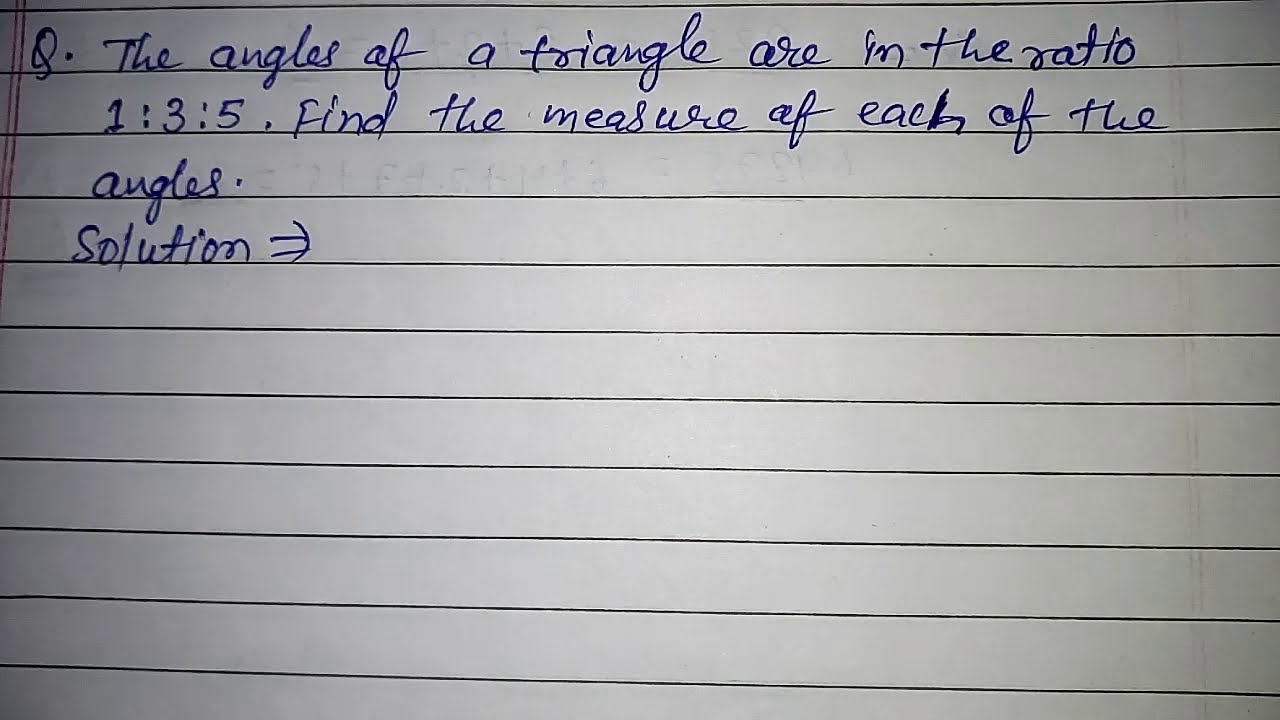 Q. The angles of a triangle are in the ratio
1:3:5. Find the measure of each of the
angles.
Solution ⇒